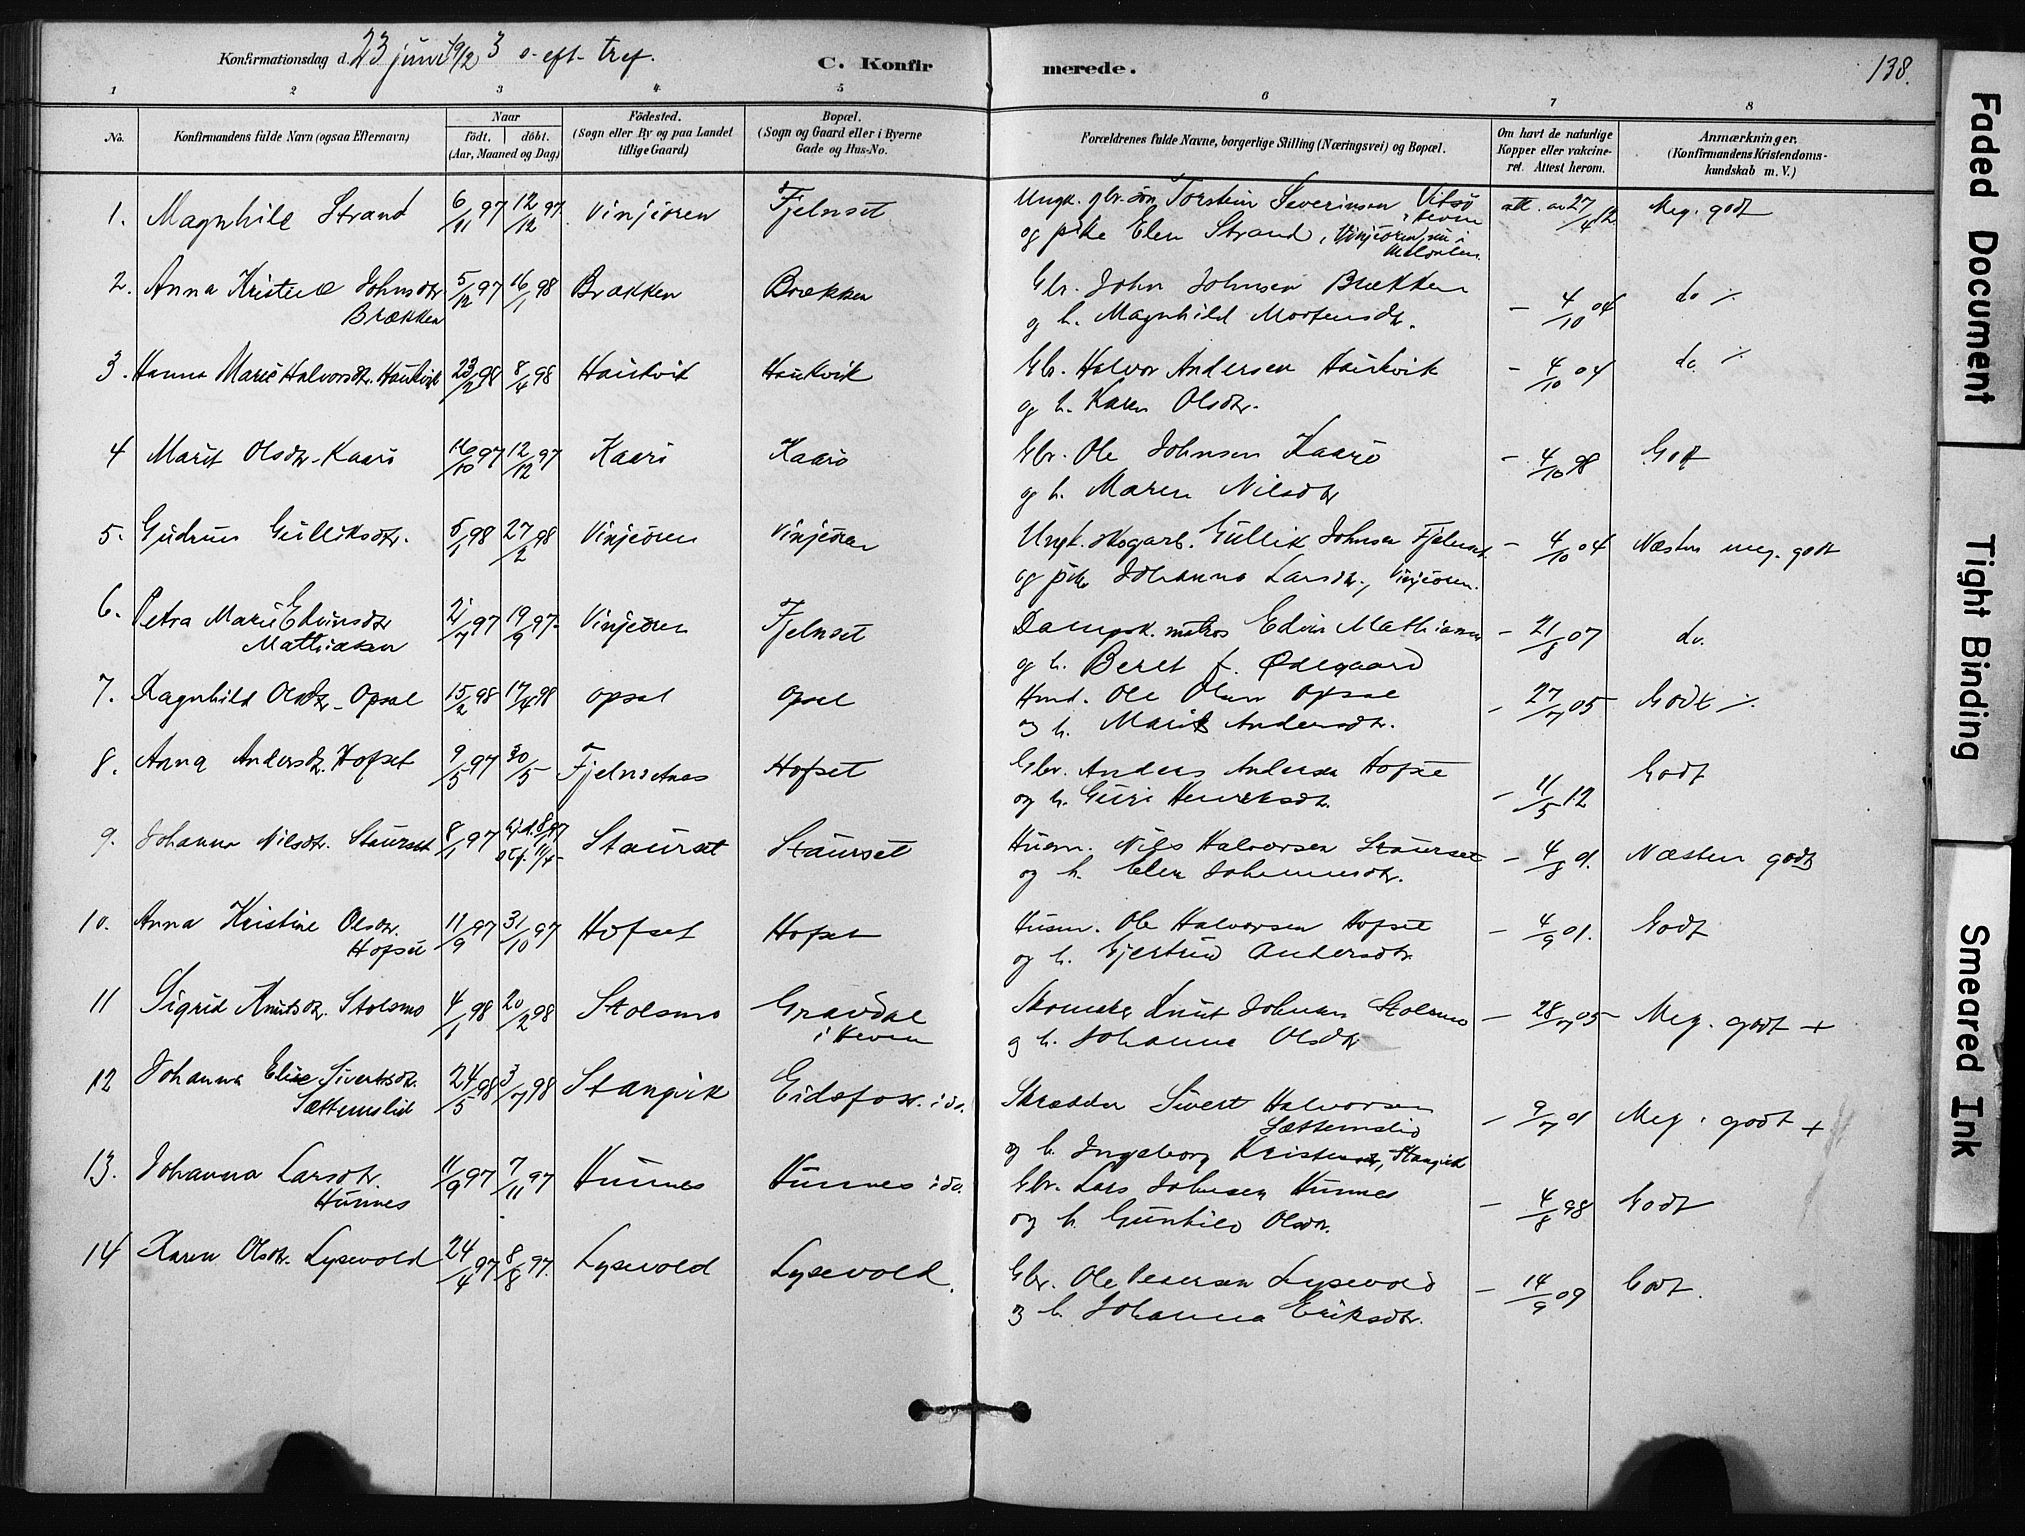 Konfirmationsdag d. 23 juni 1912 3 s. eft. tref.
C. Konfirmerede.
138.
1 2 3 4 5 6 7 8
No.
Konfirmandens fulde Navn (ogsaa Efternavn)
Naar
födt. döbt.
(Aar, Maaned og Dag)
Födested.
(Sogn eller By og paa Landet
tillige Gaard)
Bopæl.
(Sogn og Gaard eller i Byerne
Gade og Hus-No.
Forældrenes fulde Navne, borgerlige Stilling (Næringsvei) og Bopæl.
Om havt de naturlige
Kopper eller vakcine-
ret. Attest herom.
Anmærkninger.
(Konfirmandens Kristendoms-
kundskab m. V.)
1. Magnhild Strand 6/11 97 12/12 97 Vinjeören Fjelnset Ungk. gbr. sön Torstein Severinsen Vitsö i Heven att. av 27/4 12 Meg. godt
og pike Elen Strand, Vinjeören, nu i
2. Anna Kristine Johnsdtr. 5/12 97 16/1 98 Brækken Brækken Gbr. John Johnsen Brækken – 4/10 04 do ⁒
Brækken og h. Magnhild Mortensdtr.
3. Hanna Marie Halvorsdtr. Haukvik 23/2 98 8/4 98 Haukvik Haukvik Gbr. Halvor Andersen Haukvik – 4/10 04 do. ⁒
og h. Karen Olsdtr.
4 Marit Olsdtr. Kaarö 16/10 97 12/12 97 Kaarö Kaarö Gbr. Ole Johnsen Kaarö – 4/10 98 Godt
og h. Maren Nilsdtr
5. Gudrun Gulliksdtr. 5/1 98 27/2 98 Vinjeören Vinjeören Ungk. skogarb. Gullik Johnsen Fjelnset – 4/10 04 Næsten meg. godt
og pike Johanna Larsdtr., Vinjeören.
6. Petra Marie Edvinsdtr 21/7 97 19/9 97 Vinjeören Fjelnset Dampsk. matros Edvin Mathiasen – 21/8 07 do.
Mathiasen og h. Beret f. Ødegaard
7. Ragnhild Olsdtr. Opsal 15/2 98 17/4 98 Opsal Opsal Husm. Ole Olsen Opsal – 27/7 05 Godt ⁒
og h. Marit Andersdtr.
8. Anna Andersdtr. Hofset 9/5 97 30/5 Fjelnsetnes Hofset Gbr. Anders Andersen Hofset – 11/5 12 Godt
og h. Guri Henriksdtr.
9. Johanna Nilsdtr. Staurset 8/1 97 Staurset Staurset Husm. Nils Halvorsen Staurset – 4/8 01. Næsten godt
og h. Elen Johannesdtr.
10. Anna Kristine Olsdtr. 11/9 97 31/10 97 Hofset Hofset Husm. Ole Halvorsen Hofset – 4/9 01. Godt
Hofset og h. Gjertrud Andersdtr.
11 Sigrid Knutsdtr. Stolsmo 4/1 98 20/2 98 Stolsmo Gravdal Skomaker Knut Johnsen Stolsmo – 28/7 05 Meg. godt +
i Heven og h. Johanne Olsdtr
12 Johanna Elise Sivertsdtr. 24/5 98 3/7 98 Stangvik Eidsfos. i do. Skrædder Sivert Halvorsen – 9/7 01 Meg. godt +
Sættemslid Sættemslid
og h. Ingeborg Kristensdtr, Stangvik
13. Johanna Larsdtr. 11/9 97 7/11 97 Hunnes Hunnes i do. Gbr. Lars Johnsen Hunnes – 4/8 98 Godt
Hunnes og h. Gunhild Olsdtr.
14 Karen Olsdtr. Lysevold 24/4 97 8/8 97. Lysevold Lysevold. Gbr. Ole Pedersen Lysevold – 14/9 09 Godt.
og h. Johanna Eriksdtr.
Faded Document
Tight Binding
Smeared Ink